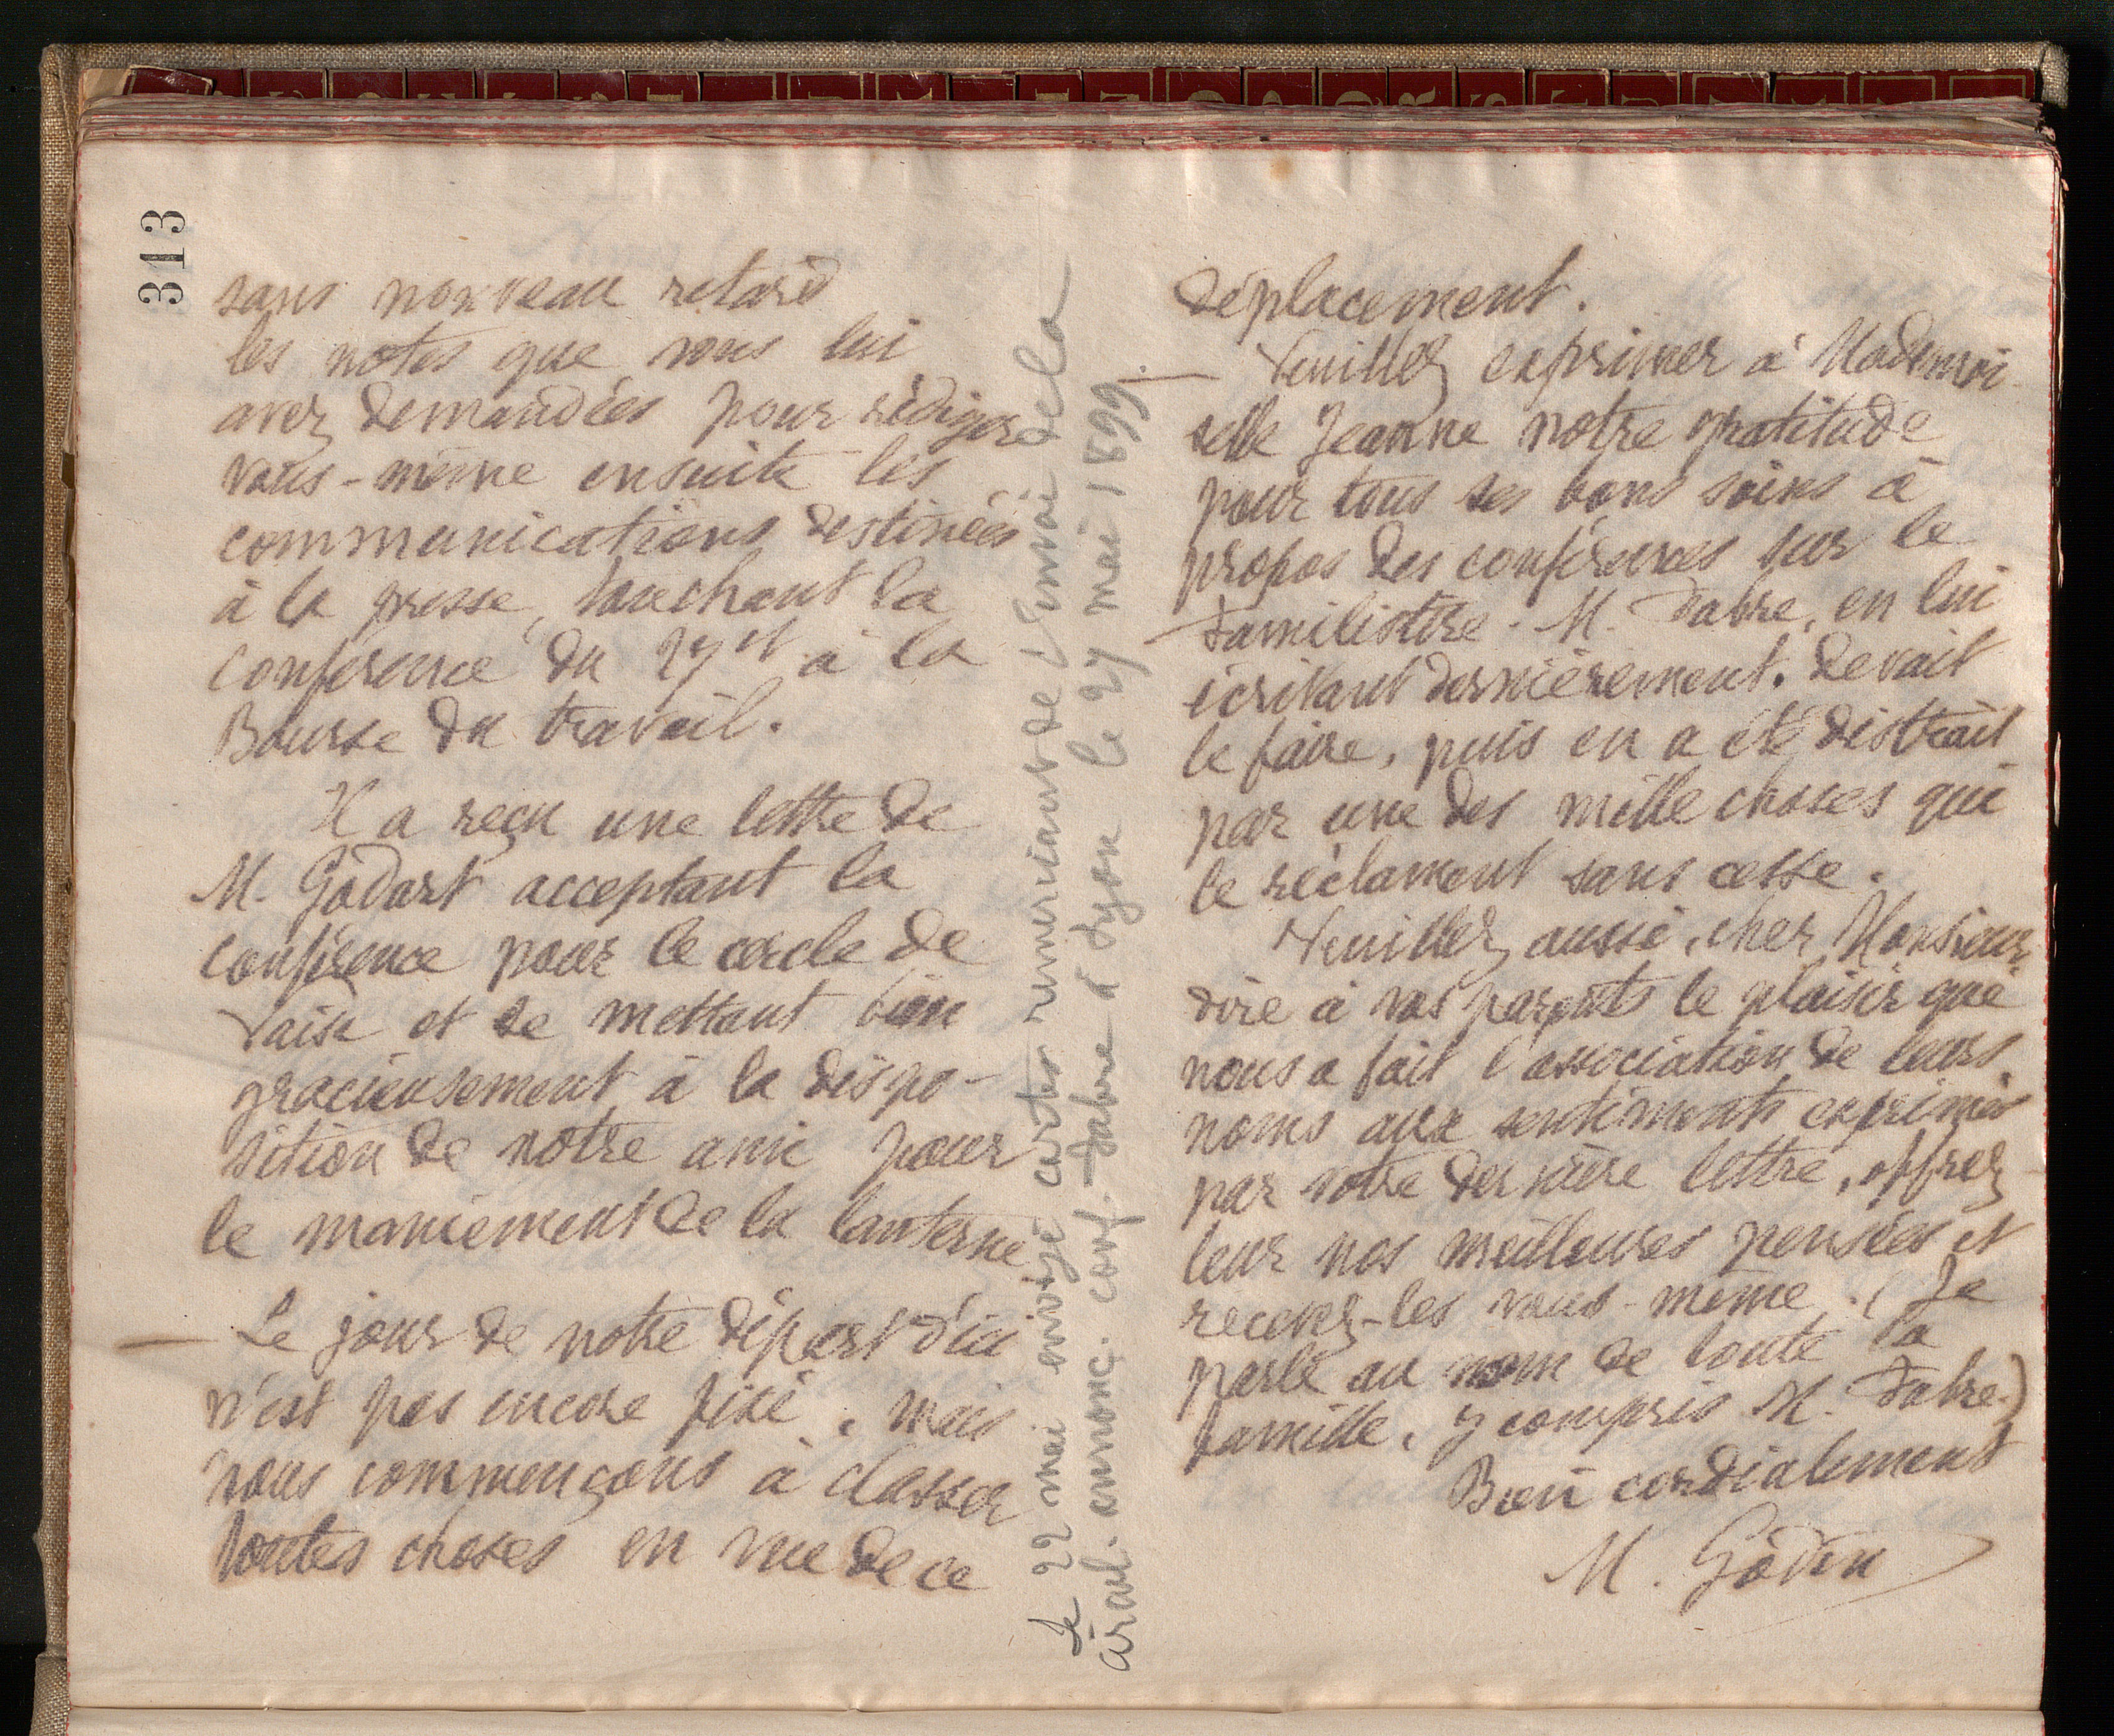 313
sans nouveau retard
les notes que vous lui
avez demandées pour rédiger
vous-même ensuite les
communications destinées
à la presse, touchant la
conférence du 27 ct à la
Bourse du travail.
Il a reçu une lettre de
M. Godart acceptant la
conférence pour le cercle de
Vaise et se mettant bien
gracieusement à la dispo-
sition de notre ami pour
le maniement de la lanterne
— Le jour de notre départ d'ici
n'est pas encore fixé, mais
nous commençons à classer
toutes choses en vue de ce
Le 22 mai envoyé cartes remerciant de l'envoi de la
circul. annonç. conf. Fabre à Lyon le 27 mai 1899.
déplacement.
— Veuillez exprimer à Mademoi-
selle Jeanne notre gratitude
pour tous ses bons soins à
propos des conférences sur le
Familistère. M. Fabre, en lui
écrivant dernièrement, devait
le faire, puis en a été distrait
par une des mille choses qui
le réclament sans cesse.
Veuillez aussi, cher Monsieur,
dire à vos parents le plaisir que
nous a fait l'association de leurs
noms aux sentiments exprimés
par votre dernière lettre, offrez
leur nos meilleures pensées et
recevez-les vous-même. (Je
parle au nom de toute la
famille, y compris M. Fabre.)
Bien cordialement
M. Godin